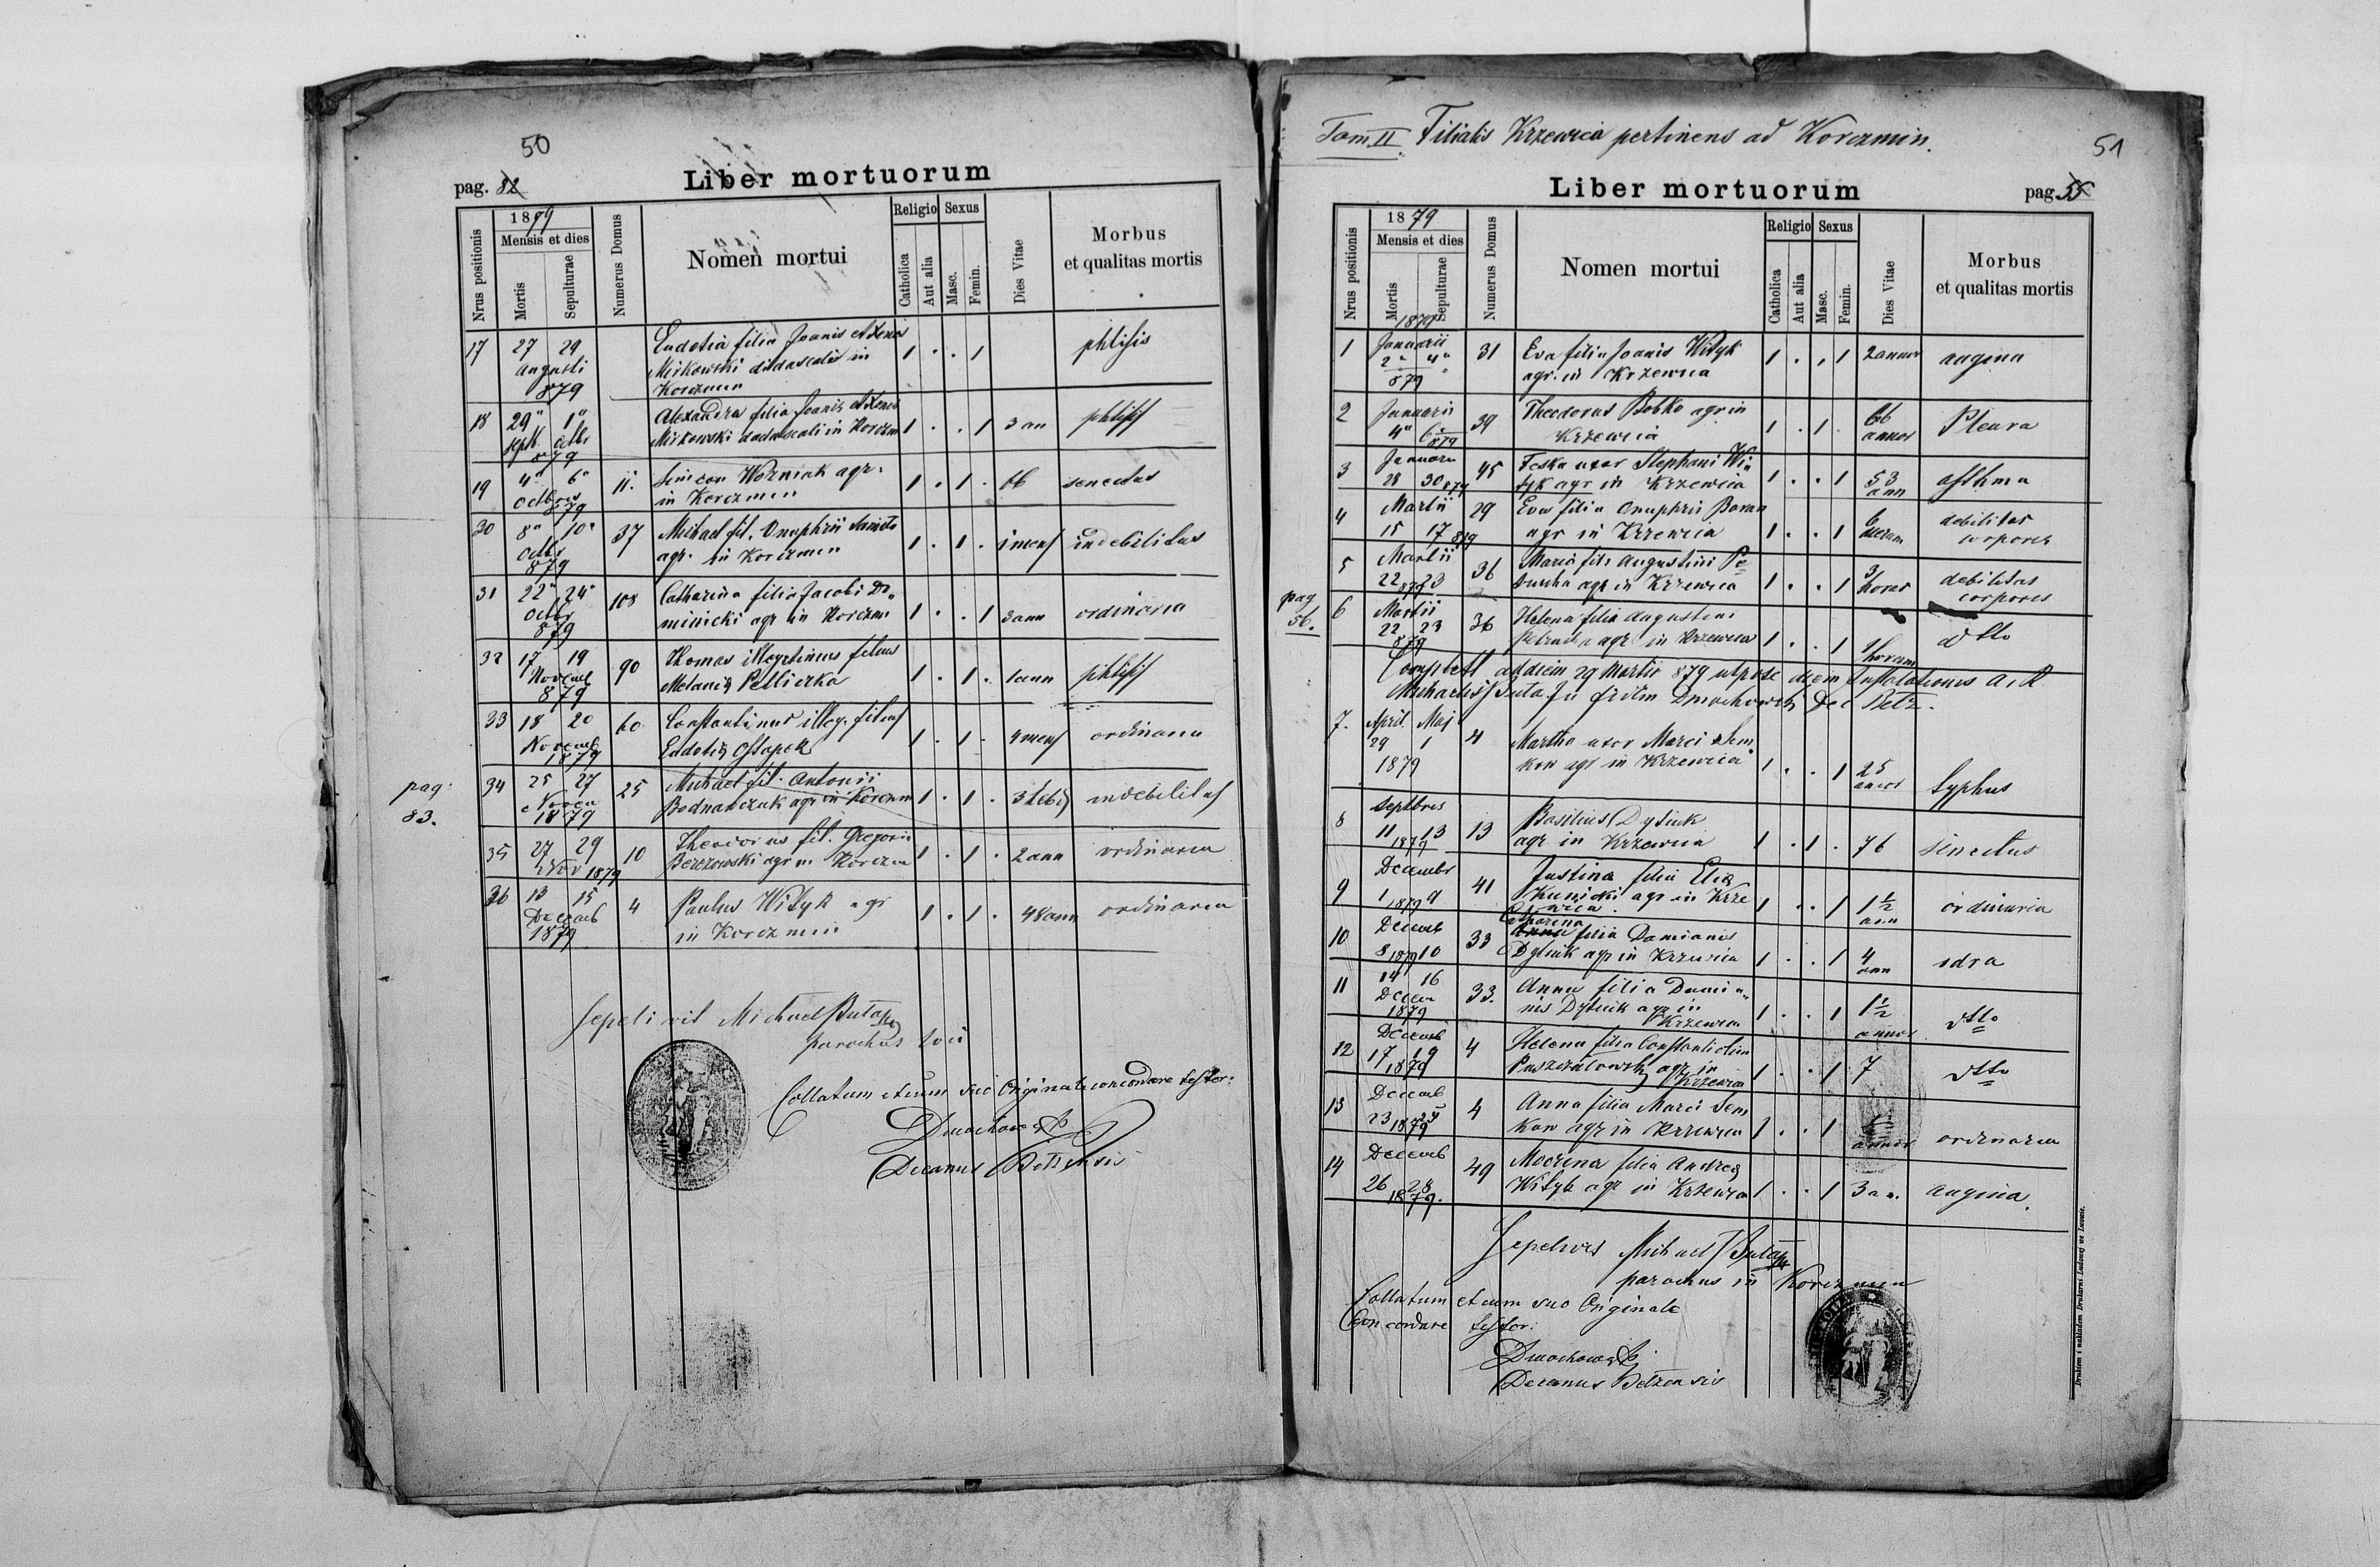 50
pag. 82
Liber mortuorum
Nrus positionis
1879
Mensis et dies
Mortis
Sepulturae
Numerus Domus
Nomen mortui
Religio
Catholica
Aut alia
Sexus
Masc.
Femin.
Dies Vitae
Morbus
et qualitas mortis
17 27 29 Eudotia filia Joanis et Xenia 1 . . 1 phtisis
augusti Mirkowski didascalis in
879 Korczmin
18 29" 1" Alexandra filia Joanis et Xenis 1 . . 1 3 an phtisis
Sept. octbr Mirkowski didascali in Korczm
879
19 4" 6" 11. Simeon Wozniak agr. 1 . 1 . 66 senectus
octbris in Korczmin
879
30 8" 10" 37 Michael fil. Onuphrii 1 . 1 . 1 mens indebilitas
octbr agr. in Korczmin
879
31 22" 24" 108 Catharina filia Jacobi Do„ 1 . . 1 3 ann ordinaria
octbr minicki agr in Korczm
879
32 17 19 90 Thomas illegitimus filius 1 . 1 . 1 ann phtisis
Novemb Melaniæ
879
33 18 20 60 Constantinus illeg. filius 1 . 1 . 4 mens ordinaria
Novemb Eudotiæ
1879
pag.
83.
34 25 27 25 Michael fil. Antonii 1 . 1 . 3 indebilitas
Novem Bodnarczuk agr in Korczm
1879
35 27 29 10 Theodorus fil. Gregorii 1 . 1 . 2 ann ordinaria
Nov 1879 Berezowski agr in Korczm
36 13 15 4 Paulus Wityk agr 1 . 1 . 48 ann ordinaria
Decemb in Korczmin
1879
Sepelivit Michael Buta
parochus loci
Collatum et cum suo Originale concordare testor:
Dmochowski
Decanus Belzensis
Tom II. Filialis Krzewica pertinens ad Korczmin.
51
Liber mortuorum
pag. 55
Nrus positionis
1879
Mensis et dies
Mortis
Sepulturae
Numerus Domus
Nomen mortui
Religio
Catholica
Aut alia
Sexus
Masc.
Femin.
Dies Vitae
Morbus
et qualitas mortis
1879
1 Januarii 31 Eva filia Joanis Wityk 1 . . 1 2 annor angina
2" 4" agr. in Krzewica
879
2 Januarii 39 Theodorus Bobko agr in 1 . 1 . 66 Pleura
4" 6" 879 Krzewica annor
3 Januarii 45 Feska uxor Stephani Wi„ 1 . . 1 53 asthma
28 30 879 tyk agr in Krzewica ann
4 Martii 29 Eva filia Onuphrii Baran 1 . . 1 6 debilitas
15 17 879 agr in Krzewica dierum corporis
5 Martii 36 Maria fil. Augustini Pe„ 1 . . 1 3 debilitas
22 879 23 agr in Krzewica horar corporis
pag
56.
6 Martii 36 Helena filia Augustini 1 . . 1 1 dtto
22 23 agr in Krzewica horam
879
ad diem 29 Martii 879 utpote diem Installationis A. R.
Michaelis Buta. In fidem Dmochowski Dec Belz.
7. April. Maj 4 Martha uxor Marci Sem„ 1 . . 1 25 typhus
29 1 kow agr in Krzewica annor
1879
8 Septbris 13 Basilius Dytiuk 1 . 1 . 76 senectus
11 13 agr in Krzewica
1879
9 Decembr 41 Justina filia Eliæ 1 . . 1 1½ ordinaria
1 1879 9 Kunicki agr in Krze ann
wica.
Catharina
10 Decemb 33 Anna filia Damianis 1 . . 1 4
8 1879 10 Dytiuk agr in Krzewica ann
11 14 16 33. Anna filia Damia„ 1 . . 1 1½ dtto
Decem nis Dytiuk agr in annor
1879 Krzewica
12 Decemb 4 Helena filia Constantini 1 . . 1 7 dtto
17 19 agr in
1879 Krzewica
13 Decemb 4 Anna filia Marci Sem 1 . . 1 annor ordinaria
23 1879 kow agr in Krzewica
14 Decemb 49 filia Andreæ 1 . . 1 3 an. angina.
26 28 Wityk agr in Krzewica
1879.
Sepelivit Michael Buta
parochus in Korczmin
Collatum et cum suo Originale
Concordare testor:
Dmochowski
Decanus Belzensis
Drukiem i nakładem Drukarni Ludowej we Lwowie.